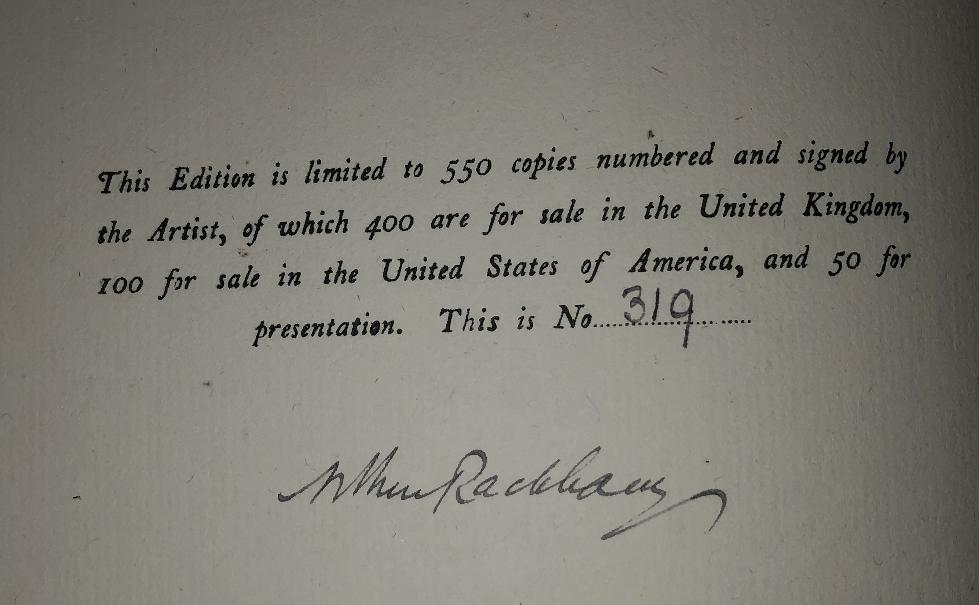 This Edition is limited to 550 copies numbered and signed by
the Artist, of which 400 are for sale in the United Kingdom,
100 for sale in the United States of America, and 50 for
presentation. This is No.....319.........
Arthur Rackham